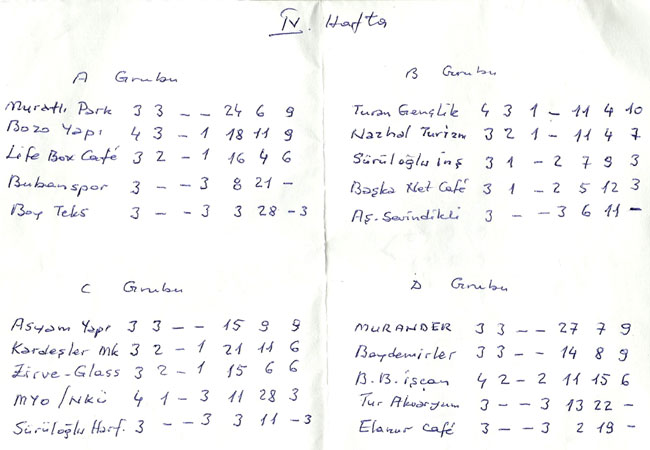 IV. Hafta
A Grubu
Muratlı Park 3 3 - - 24 6 9
Bozo Yapı 4 3 - 1 18 11 9
Life Box Café 3 2 - 1 16 4 6
Bubanspor 3 - - 3 8 21 -
Boy Teks 3 - - 3 3 28 -3
B Grubu
Turan Gençlik 4 3 1 - 11 4 10
Nazhal Turizm 3 2 1 - 11 4 7
Sürüloğlu inş 3 1 - 2 7 9 3
Başka Net Café 3 1 - 2 5 12 3
Aş. Sevindikli 3 - - 3 6 11 -
C Grubu
Asyam Yapı 3 3 - - 15 9 9
Kardeşler Mk 3 2 - 1 21 11 6
Zirve-Glass 3 2 - 1 15 6 6
MYO/NKÜ 4 1 - 3 11 28 3
Sürüloğlu Harf. 3 - - 3 3 11 -3
D Grubu
MURANDER 3 3 - - 27 7 9
Baydemirler 3 3 - - 14 8 9
B.B. işçan 4 2 - 2 11 15 6
Tur Akvaryum 3 - - 3 13 22 -
Elanur Café 3 - - 3 2 19 -